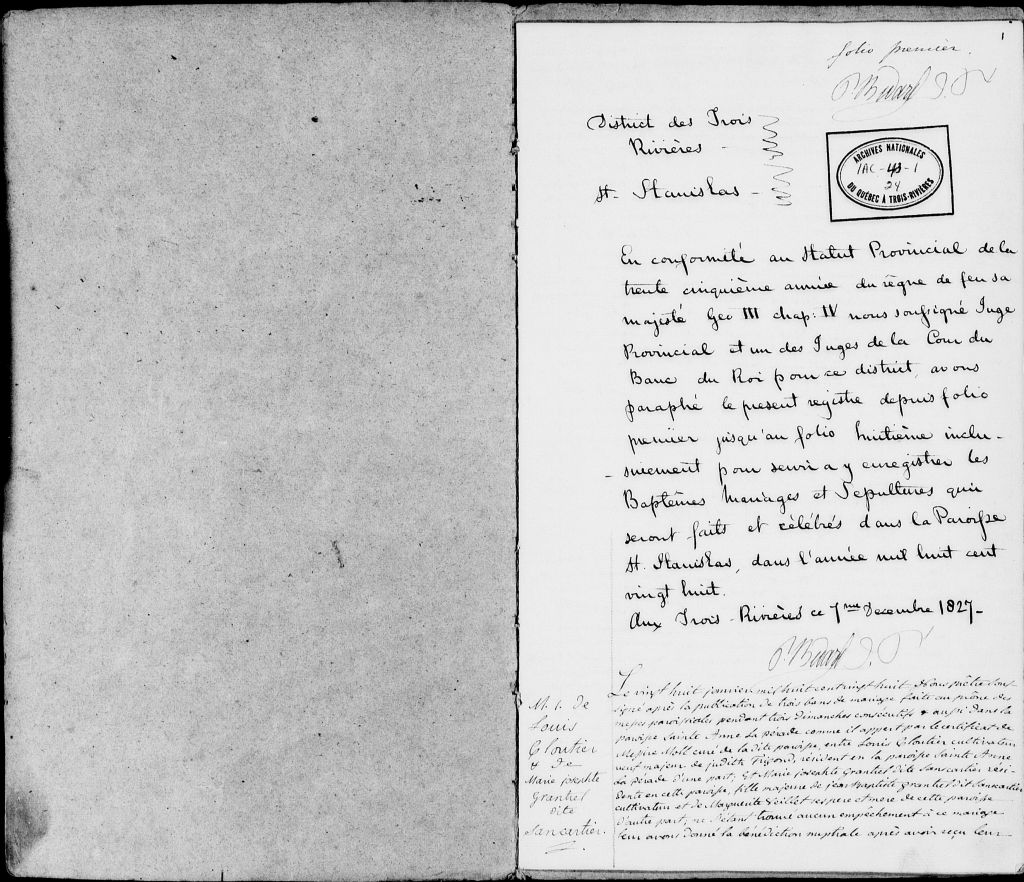 1
folio premier.
P. Bédard J. P.
District des Trois
Rivières -
ARCHIVES NATIONALES
1AC-43-1
24
DU QUÉBEC À TROIS-RIVIÈRES
St. Stanislas -
En conformité au Statut Provincial de la
trente cinquième année du règne de feu sa
majesté Geo III chap: IV nous soussigné Juge
Provincial et un des Juges de la Cour du
Banc du Roi pour ce district, avons
paraphé le present registre depuis folio
premier jusqu'au folio huitième inclu-
-sivement pour servir a y enregistrer les
Baptêmes Mariages et Sepultures qui
seront faits et célébrés dans la Paroisse
St. Stanislas, dans l'année mil huit cent
vingt huit.
Aux Trois-Rivières ce 7me Decembre 1827-
P. Bédard J. P.
M. 1. de
Louis
Cloutier
& de
Marie josephte
Grantiel
dite
Sancartier.
Le vingt huit janvier mil huit cent vingt huit Nous prêtre sous-
signé après la publication de trois bans de mariage faite au prône des
messes paroissiales pendant trois dimanches consécutifs & aussi dans la
paroisse Sainte Anne La pérade comme il appert par le certificat de
Messire Moll curé de la dite paroisse, entre Louis Cloutier cultivateur
veuf majeur de judith, résident en la paroisse Sainte Anne
La pérade d'une part; Et Marie josephte Grantiel dite Sancartier rési-
dente en cette paroisse, fille majeure de jean Baptiste Grantiel dit Sancartier
cultivateur et de Marguerite Veillet ses pere et mere de cette paroisse
d'autre part; ne s'étant trouvé aucun empêchement à ce mariage
leur avons donné la bénédiction nuptiale après avoir reçu leur